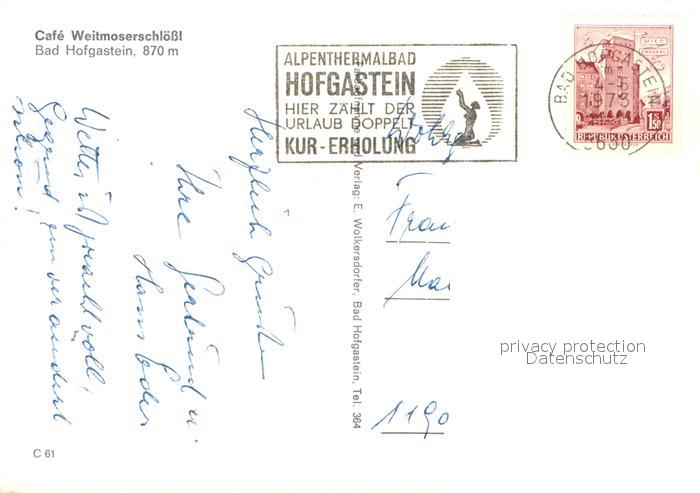 Café Weitmoserschlößl
Bad Hofgastein, 870 m
ALPENTHERMALBAD
HOFGASTEIN
HIER ZÄHLT DER
URLAUB DOPPELT
KUR-ERHOLUNG
BAD HOFGASTEIN
1973
5630
WIEN
ERDBERG
S 1.50
REPUBLIK ÖSTERREICH
Herzliche Grüße
Ihre
Hans
Wetter ist prachtvoll,
Gegend unverändert
schön!
Verlag: E. Wolkersdorfer, Bad Hofgastein, Tel. 364
Frau
1190
privacy protection
Datenschutz
C 61